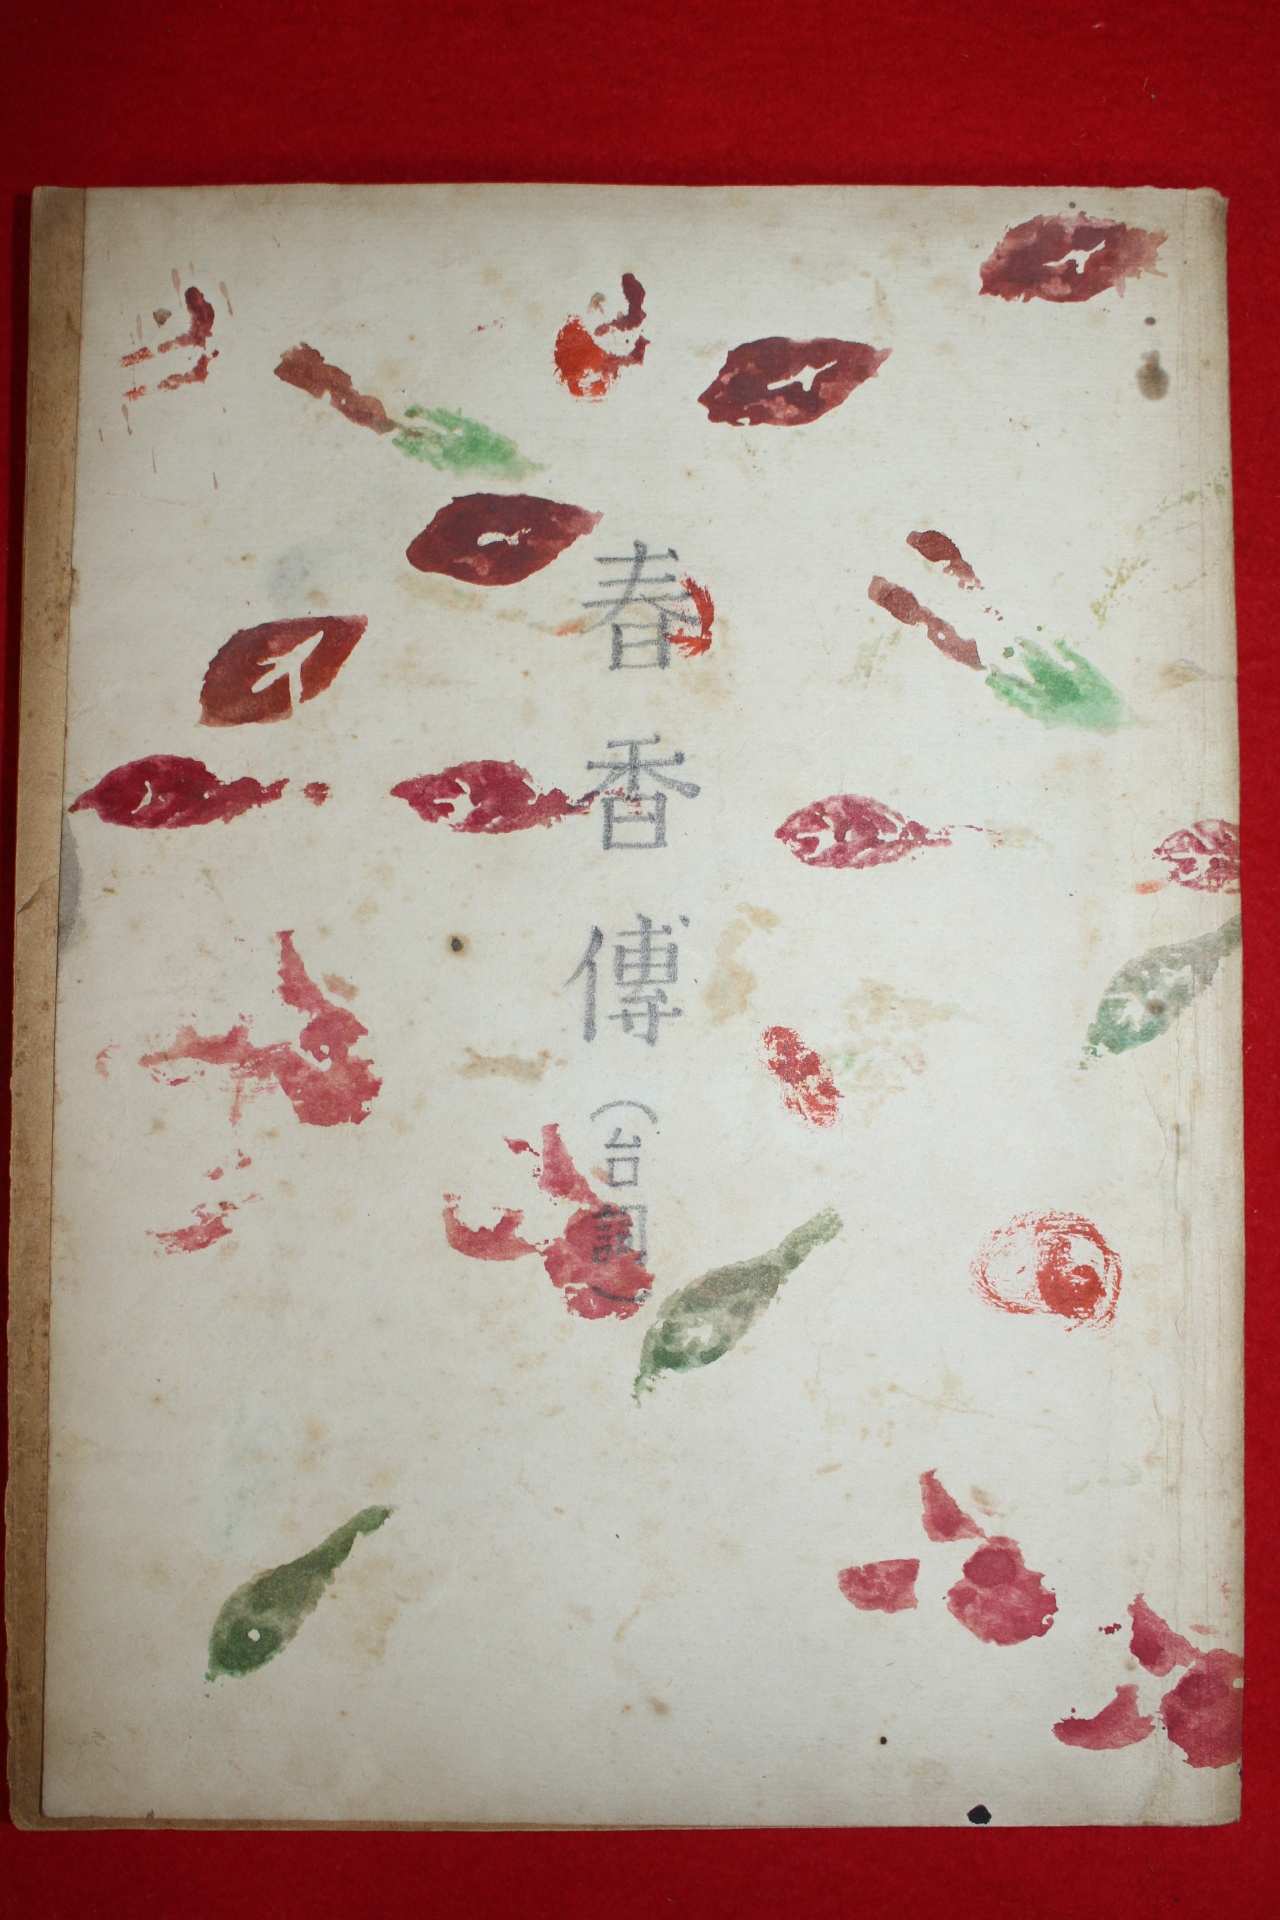 春香傳（台詞）